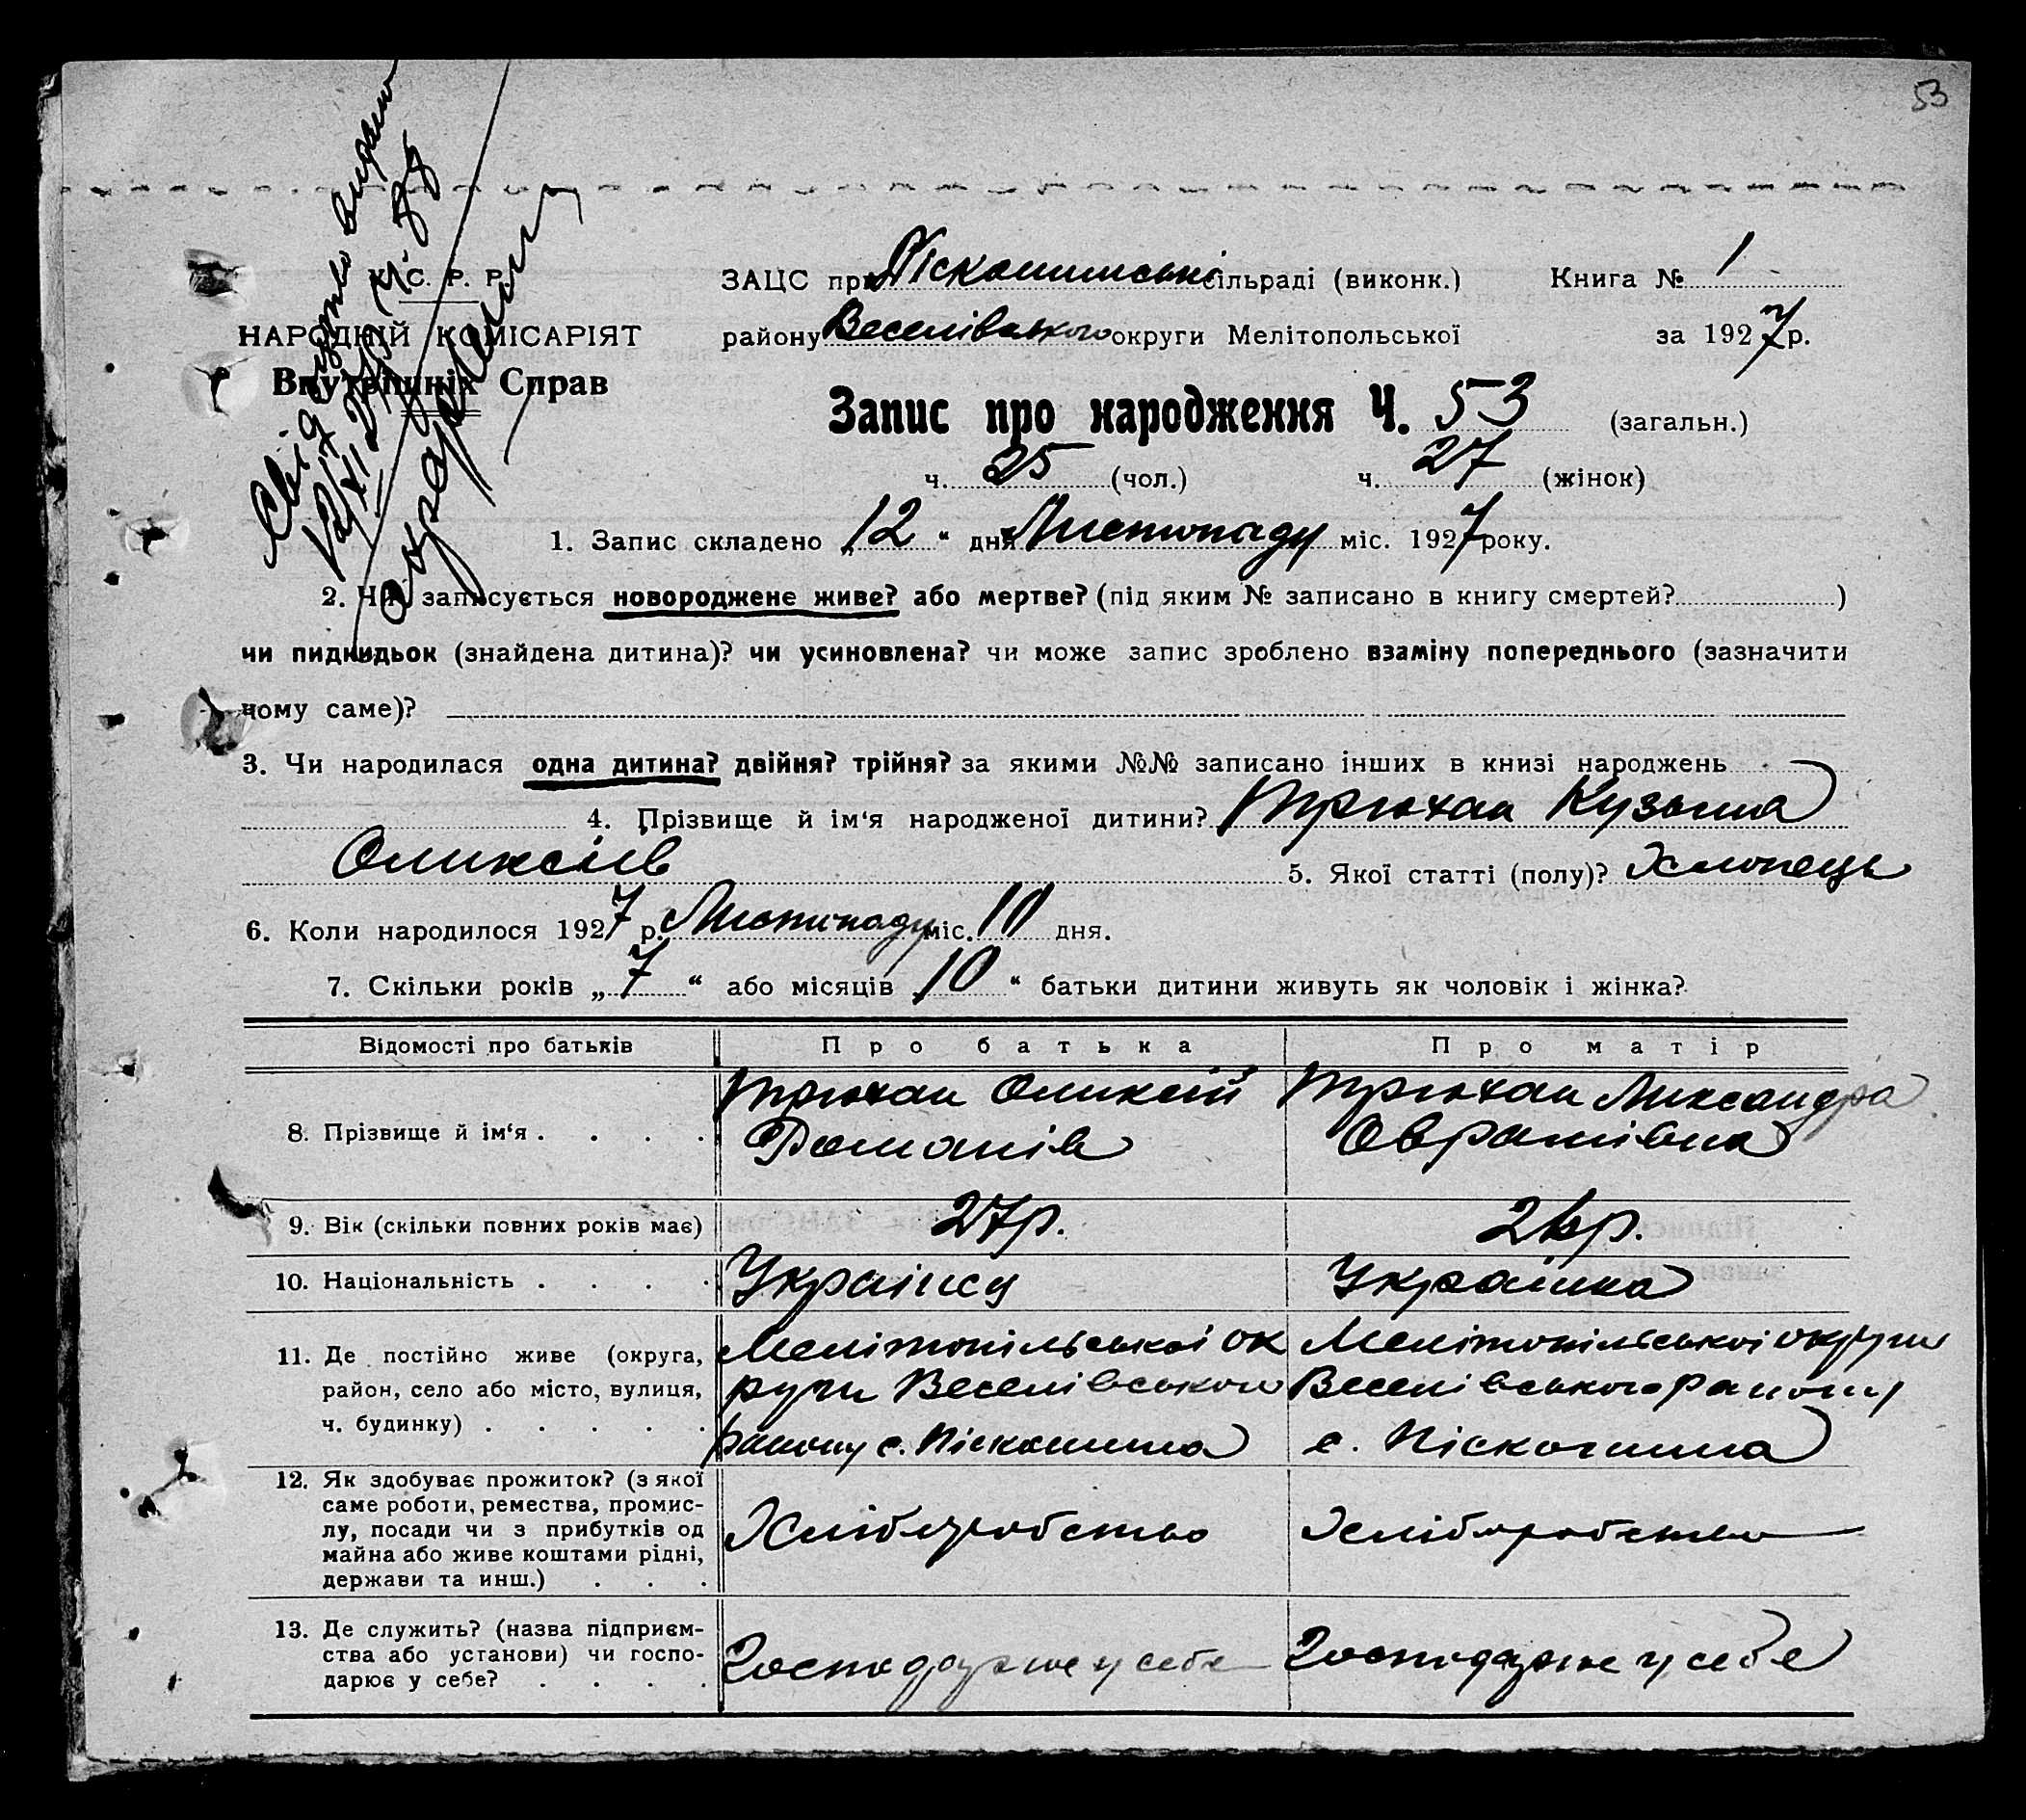 53
Свідоцтво видано
У. С. Р. Р.
НАРОДНІЙ КОМІСАРІЯТ
Внутрішніх Справ
ЗАЦС при Піскошинські сільраді (виконк.) Книга № 1
району Веселівського округи Мелітопольської за 1927 р.
Запис про народження Ч. 53 (загальн.)
ч. 25 (чол.) ч. 27 (жінок)
1. Запис складено „12“ дня Листопаду міс. 1927 року.
2. Чи записується новороджене живе? або мертве? (під яким № записано в книгу смертей? )
чи пидкидьок (знайдена дитина)? чи усиновлена? чи може запис зроблено взаміну попереднього (зазначити
чому саме)?
3. Чи народилася одна дитина? двійня? трійня? за якими №№ записано інших в книзі народжень
4. Прізвище й ім‘я народженої дитини? Трюхан Кузьма
Оликсіів 5. Якої статті (полу)? Хлопець
6. Коли народилося 1927 р. Листопаду міс. 11 дня.
7. Скільки років „7“ або місяців „10“ батьки дитини живуть як чоловік і жінка?
Відомості про батьків Про батька Про матір
8. Прізвище й ім‘я . . . . Трюхан Оликсій Трюхан Ликсандра
Романів Оврамівна
9. Вік (скільки повних років має) 27р. 26р.
10. Національність . . . . Українец Українка
11. Де постійно живе (округа, Мелітопільської ок Мелітопільської округи
район, село або місто, вулиця, руги Веселівського Веселівського району
ч. будинку) . . . . району с. Піскошина с. Піскошина
12. Як здобуває прожиток? (з якої
саме роботи, ремества, промис-
лу, посади чи з прибутків од Хліборобство Хліборобство
майна або живе коштами рідні,
держави та инш.) . . .
13. Де служить? (назва підприєм-
ства або установи) чи госпо- Господарює у себе Господарює у себе
дарює у себе? . . . .